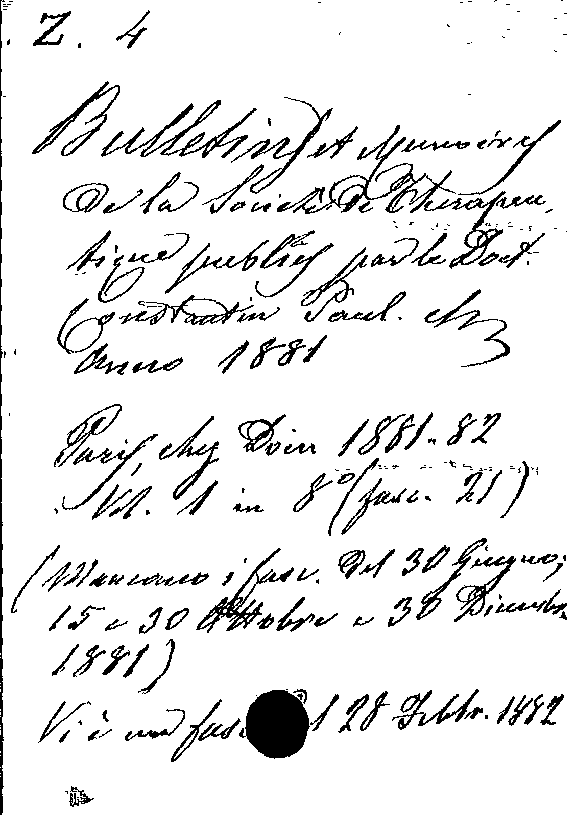 Z. 4
Bulletins et Memoires
de la Société de Therapeu-
tique publiés par le Doct.
Constantin Paul.
Anno 1881
Paris, chez Doin 1881-82
Vol. 1 in 8° (fasc. 21)
(Mancano i fasc. del 30 Giugno;
15 e 30 Ottobre e 30 Dicembre
1881)
Vi è un fasc. 28 Febbr. 1882